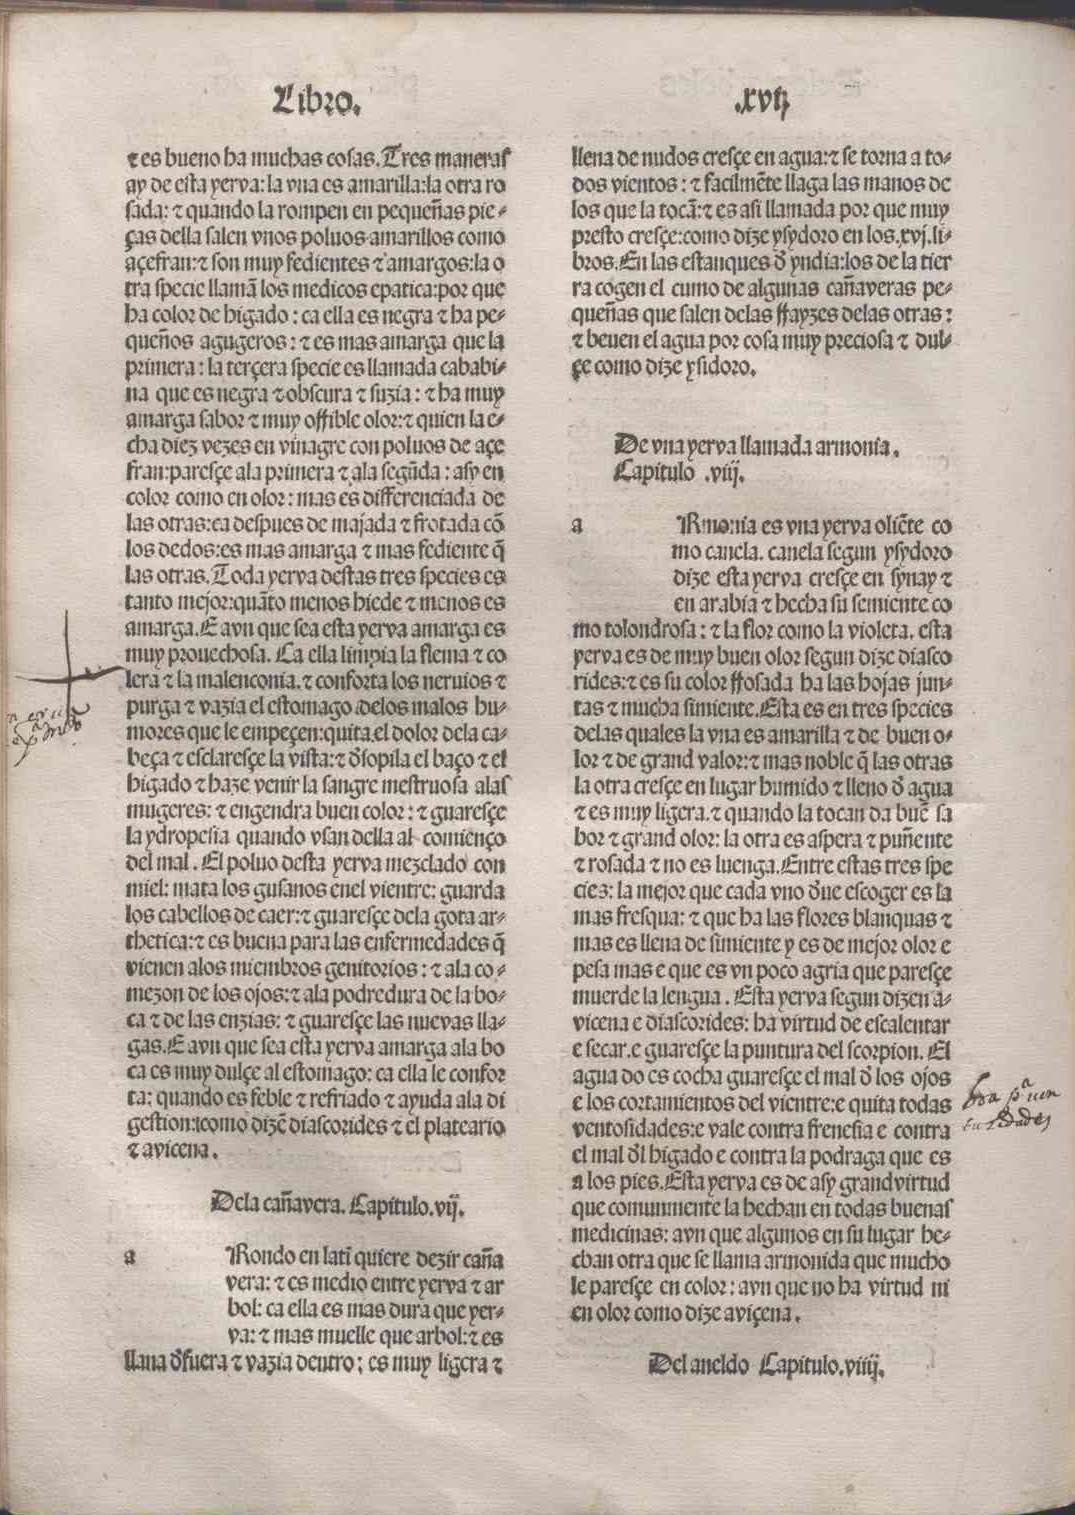 Libro.
.xvij
⁊ es bueno ha muchas cosas. Tres maneras
ay de esta yerva: la vna es amarilla: la otra ro
sada: ⁊ quando la rompen en pequeñas pie-
ças della salen vnos poluos amarillos como
açefran: ⁊ son muy fedientes ⁊ amargos: la o
tra specie llamā los medicos epatica: por que
ha color de higado: ca ella es negra ⁊ ha pe-
queños agugeros: ⁊ es mas amarga que la
primera: la terçera specie es llamada cababi-
na que es negra ⁊ obscura ⁊ suzia: ⁊ ha muy
amarga sabor ⁊ muy offible olor: ⁊ quien la e-
cha diez vezes en vinagre con poluos de açe
fran: paresçe ala primera ⁊ ala segūda: asy en
color como en olor: mas es differenciada de
las otras: ca despues de majada ⁊ frotada cō
los dedos: es mas amarga ⁊ mas fediente q̄
las otras. Toda yerva destas tres species es
tanto mejor: quāto menos hiede ⁊ menos es
amarga. E avn que sea esta yerva amarga es
muy prouechosa. Ca ella limpia la flema ⁊ co
lera ⁊ la malenconia. ⁊ conforta los neruios ⁊
purga ⁊ vazia el estomago .delos malos hu-
mores que le empeçen: quita el dolor dela ca-
beça ⁊ esclaresçe la vista: ⁊ d̄sopila el baço ⁊ el
higado ⁊ haze venir la sangre mestruosa alas
mugeres: ⁊ engendra buen color: ⁊ guaresçe
la ydropesia quando vsan della al comienço
del mal. El poluo desta yerva mezclado con
miel: mata los gusanos enel vientre: guarda
los cabellos de caer: ⁊ guaresçe dela gota ar-
thetica: ⁊ es buena para las enfermedades q̄
vienen alos miembros genitorios: ⁊ ala co-
mezon de los ojos: ⁊ ala podredura de la bo-
ca ⁊ de las enzias: ⁊ guaresçe las nuevas lla-
gas. E avn que sea esta yerva amarga ala bo
ca es muy dulçe al estomago: ca ella le confor
ta: quando es feble ⁊ refriado ⁊ ayuda ala di
gestion: como dizē diascorides ⁊ el plateario
⁊ avicena.
Dela cañavera. Capitulo .vij.
a
Rondo en latī quiere dezir caña
vera: ⁊ es medio entre yerva ⁊ ar
bol: ca ella es mas dura que yer-
va: ⁊ mas muelle que arbol: ⁊ es
llana d̄fuera ⁊ vazia dentro; es muy ligera ⁊
llena de nudos cresçe en agua: ⁊ se torna a to-
dos vientos: ⁊ facilmēte llaga las manos de
los que la tocā: ⁊ es asi llamada por que muy
presto cresçe: como dize ysydoro en los .xvj. li-
bros. En las estanques d̄ yndia: los de la tier
ra cogen el cumo de algunas cañaveras pe-
queñas que salen delas rrayzes delas otras:
⁊ beuen el agua por cosa muy preciosa ⁊ dul-
çe como dize ysidoro.
De vna yerva llamada armonia.
Capitulo .viij.
a
Rmonia es vna yerva oliēte co
mo canela. canela segun ysydoro
dize esta yerva cresçe en synay ⁊
en arabia ⁊ hecha su semiente co
mo tolondrosa: ⁊ la flor como la violeta. esta
yerva es de muy buen olor segun dize diasco
rides: ⁊ es su color rrosada ha las hojas jun-
tas ⁊ mucha simiente. Esta es en tres species
delas quales la vna es amarilla ⁊ de buen o-
lor ⁊ de grand valor: ⁊ mas noble q̄ las otras
la otra cresçe en lugar humido ⁊ lleno d̄ agua
⁊ es muy ligera. ⁊ quando la tocan da buē sa
bor ⁊ grand olor: la otra es aspera ⁊ puñente
⁊ rosada ⁊ no es luenga. Entre estas tres spe
cies: la mejor que cada vno d̄ue escoger es la
mas fresqua: ⁊ que ha las flores blanquas ⁊
mas es llena de simiente y es de mejor olor e
pesa mas e que es vn poco agria que paresçe
muerde la lengua. Esta yerva segun dizen a-
vicena e diascorides: ha virtud de escalentar
e secar. e guaresçe la puntura del scorpion. El
agua do es cocha guaresçe el mal d̄ los ojos
e los cortamientos del vientre: e quita todas
ventosidades: e vale contra frenesia e contra
el mal d̄l higado e contra la podraga que es
a los pies. Esta yerva es de asy grand virtud
que comunmente la hechan en todas buenas
medicinas: avn que algunos en su lugar he-
chan otra que se llama armonida que mucho
le paresçe en color: avn que no ha virtud ni
en olor como dize aviçena.
Del aneldo Capitulo .viiij.